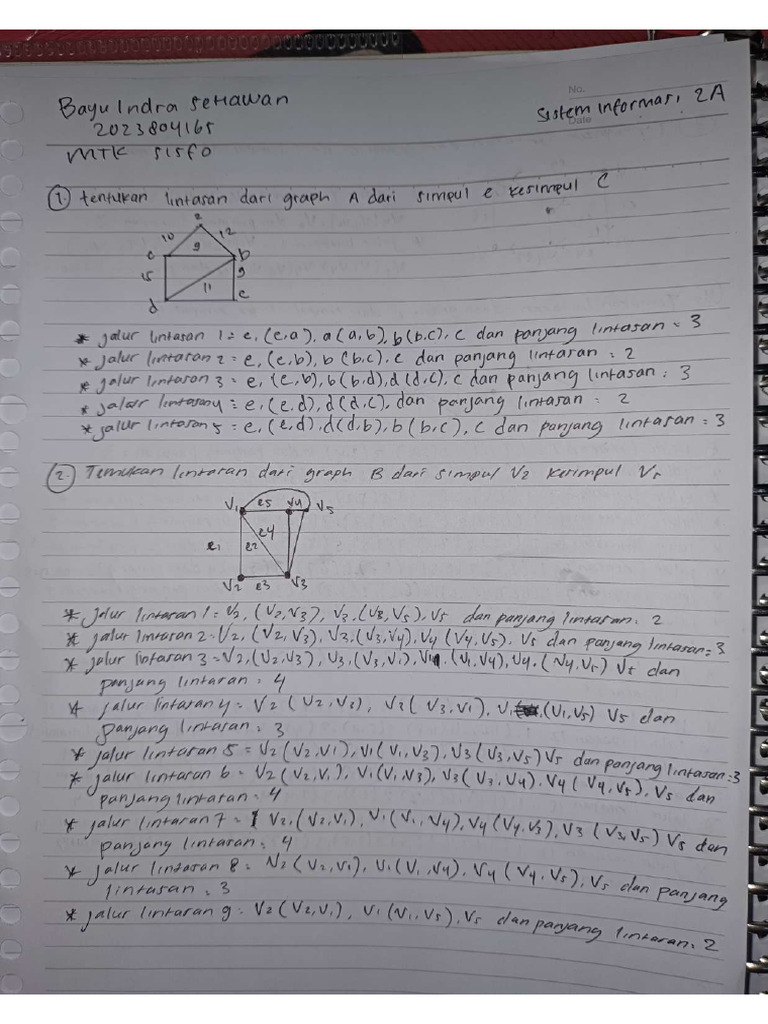 No.
Date
Bayu Indra Setiawan
Sistem informasi 2A
2023804165
MTK SISFO
1. tentukan lintasan dari graph A dari simpul e kesimpul C
a
10
12
9
e
b
15
9
11
d
c
* jalur lintasan 1 = e, (e,a), a(a,b), b(b,c), c dan panjang lintasan = 3
* jalur lintasan 2 = e, (e,b), b(b,c), c dan panjang lintasan : 2
* jalur lintasan 3 = e, (e,b), b(b,d), d(d,c), c dan panjang lintasan : 3
* jalur lintasan 4 = e, (e,d), d(d,c), dan panjang lintasan : 2
* jalur lintasan 5 = e, (e,d), d(d,b), b(b,c), c dan panjang lintasan : 3
2. Temukan lintasan dari graph B dari simpul V2 kesimpul V5
V1
e5
V4
V5
e4
e1
e2
V2
e3
V3
* jalur lintasan 1 = V2, (V2,V3), V3, (V3,V5), V5 dan panjang lintasan : 2
* jalur lintasan 2 = V2, (V2,V3), V3, (V3,V4), V4 (V4,V5), V5 dan panjang lintasan : 3
* jalur lintasan 3 = V2, (V2,V3), V3, (V3,V1), V1, (V1,V4), V4, (V4,V5) V5 dan
panjang lintasan : 4
* jalur lintasan 4 = V2 (V2,V3), V3 (V3,V1), V1, (V1,V5) V5 dan
panjang lintasan : 3
* jalur lintasan 5 = V2 (V2,V1), V1 (V1,V3), V3 (V3,V5) V5 dan panjang lintasan : 3
* jalur lintasan 6 = V2 (V2,V1), V1 (V1,V3), V3 (V3,V4), V4 (V4,V5), V5 dan
panjang lintasan : 4
* jalur lintasan 7 = V2, (V2,V1), V1 (V1,V4), V4 (V4,V3), V3 (V3,V5) V5 dan
panjang lintasan : 4
* jalur lintasan 8 = V2 (V2,V1), V1 (V1,V4), V4 (V4,V5), V5 dan panjang
lintasan : 3
* jalur lintasan 9 = V2 (V2,V1), V1 (V1,V5), V5 dan panjang lintasan : 2